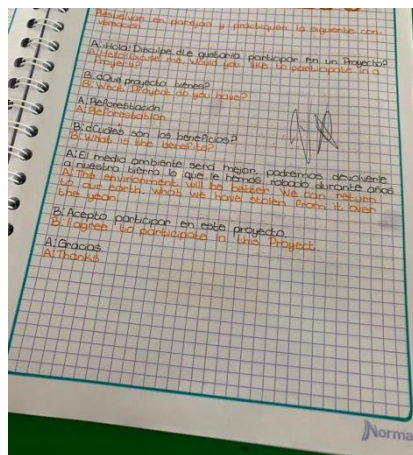 Resuelvan en parejas y practiquen la siguiente con
versación
A: ¡Hola! Disculpe ¿le gustaría participar en un Proyecto?
A: Hello! Excuse me, would you like to participate in a
Proyect?
B: ¿Qué proyecto tienes?
B: What Proyect do you have?
A: Reforestación
A: Reforestation
B: ¿Cuáles son los beneficios?
B: What is the benefits?
A: El medio ambiente será mejor, podremos devolverle
a nuestra tierra lo que le hemos robado durante años
A: The environment will be better. We can return
to our earth what we have stolen from it over
the year.
B: Acepto participar en este proyecto
B: I agree to participate in this Proyect.
A: Gracias
A: Thanks
Norma